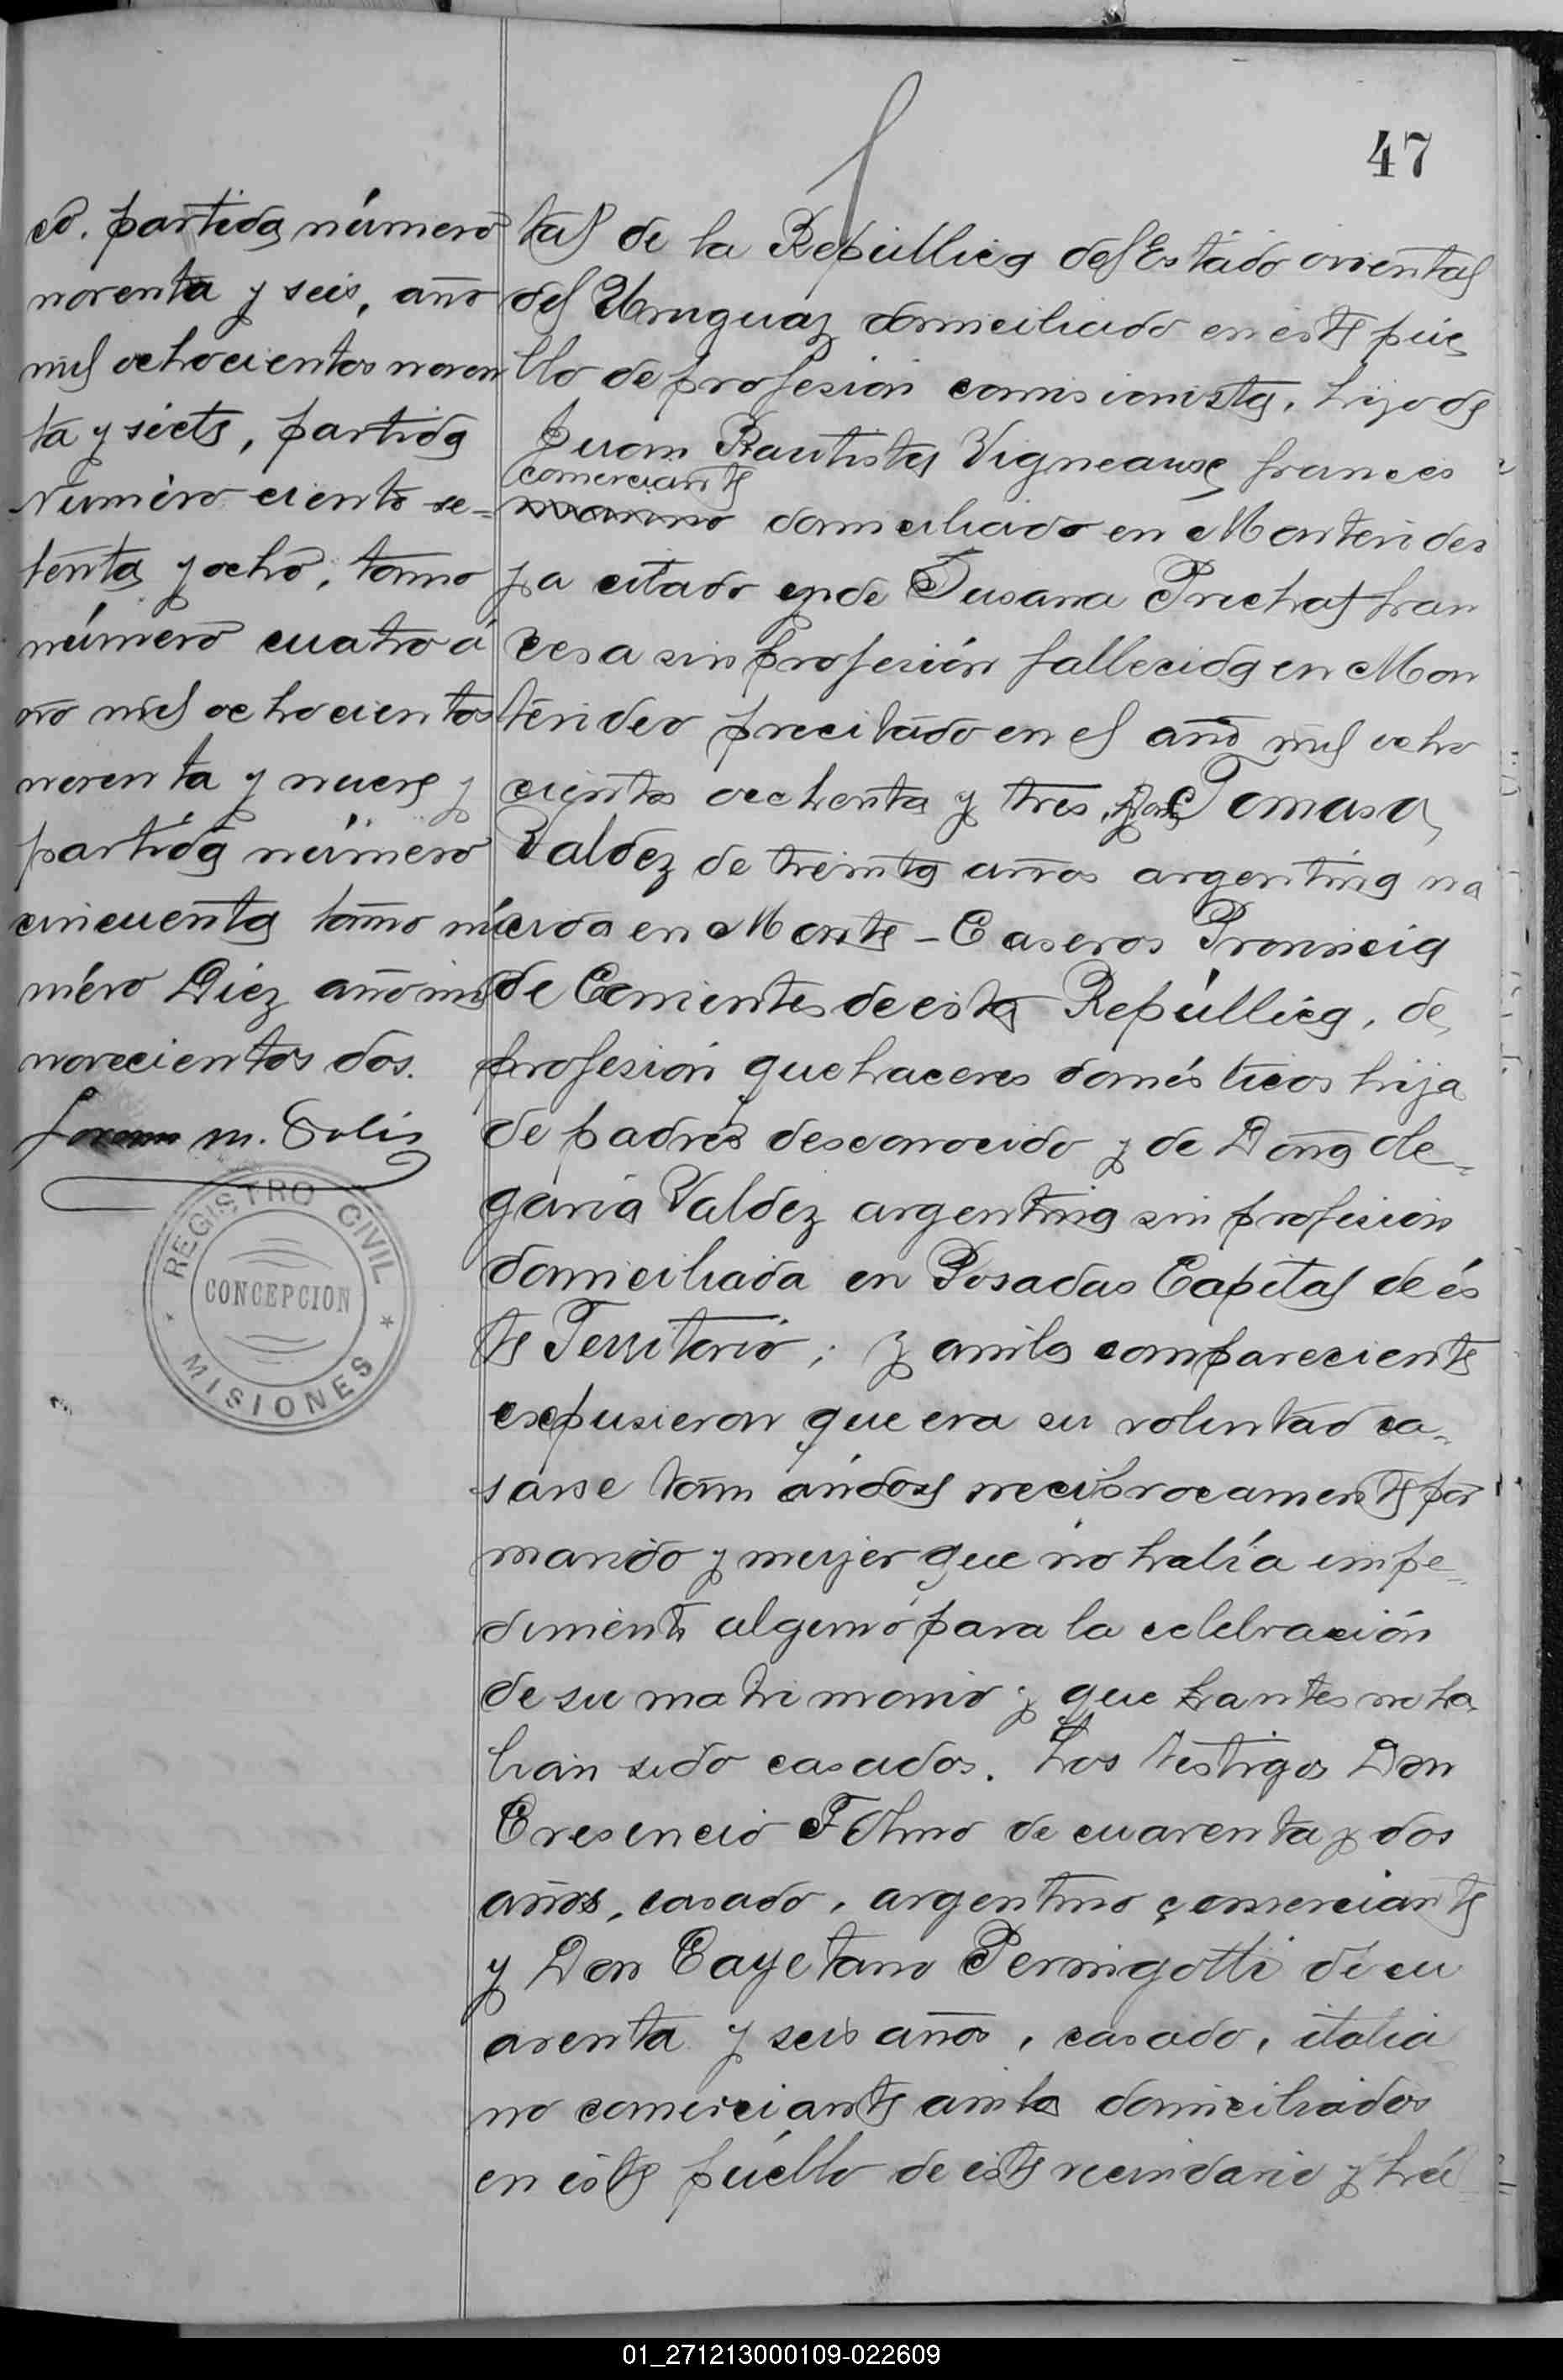 47
co. partida número
noventa y seis, año
mil ochocientos noven
ta y siete, partida
Número ciento se=
tenta y ocho, tomo
número cuatro a
ño mil ochocientos
noventa y nueve y
partida número
cincuenta tomo nú
méro Diez año mil
novecientos dos.
m. Solis
REGISTRO CIVIL
CONCEPCION
MISIONES
tal de la República del Estado oriental
del Uruguay domiciliado en éste pue
blo de profesión comisionista, hijo de
Juan Bautista Vigneause, frances
comerciante
marino domiciliado en Montevideo
ya citado y de Susana Prichat fran
cesa sin profesión fallecida en Mon
tevideo precitado en el año mil ocho
cientos ochenta y tres, y Doña Tomasa
Valdez de treinta años argentina na
cida en Monte-Caseros Provincia
de Corrientes de esta República, de
profesión quehaceres domésticos hija
de padres desconocido y de Doña Ole=
garia Valdez argentina sin profesión
domiciliada en Posadas Capital de és
te Territorio; y ambos compareciente
expusieron que era su voluntad ca=
sarse tomándose reciprocamente por
marido y mujer que no había impe=
dimento alguno para la celebración
de su matrimonio y que hantes no ha
bian sido casados. Los testigos Don
Cresencio F Olmo de cuarenta y dos
años, casado, argentino comerciante
y Don Cayetano Pernigotti de cu
arenta y seis años, casado, italia
no comerciante ambos domiciliados
en éste puéblo de este vecindario y há=
01_271213000109-022609